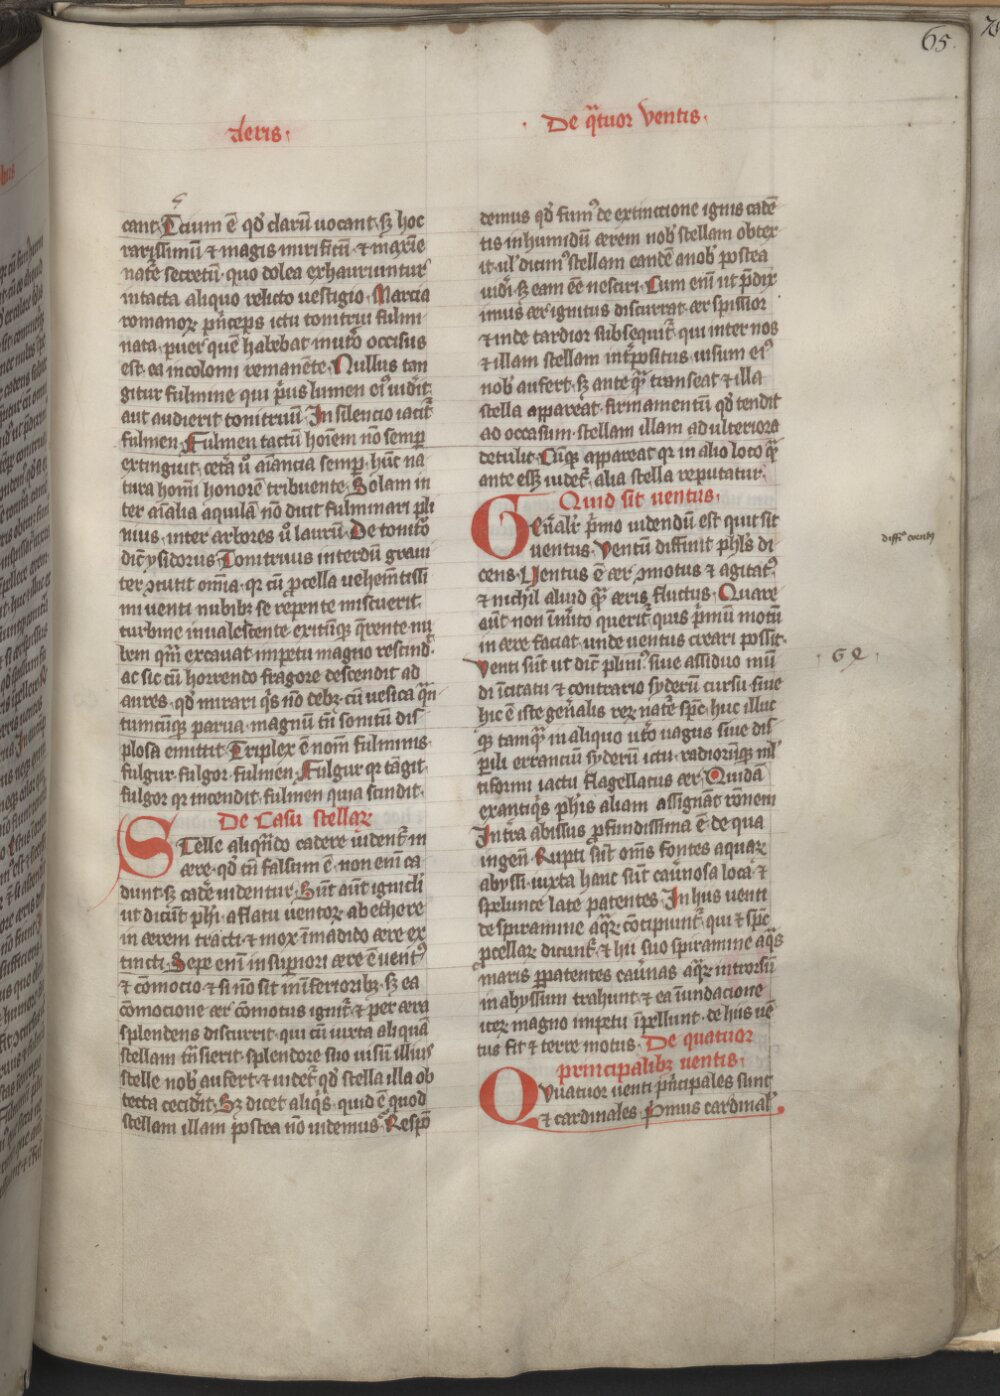 65
aeris·
· De qͣtuor ventis·
cant· Tcium ē qď clarū uocant· sꝫ hoc
rarissimū ⁊ magis mirificū· ⁊ maxīe
natᷓe secretū· quo dolea exhauriuntur
intacta aliquo relicto uestigio· Marcia
romanoꝝ pͥnceps ictu tonitrui fulmi
nata· puer quē habebat intͣ occisus
est· ea incolomi remanēte· Nullus tan
gitur fulmine qui pͥus lumen eiꝰ uidīt·
aut audierit tonitruū· In silencio
fulmen· Fulmen tactū hoīem nō semꝑ
extinguit· cetͣa ů aīancia semꝑ· hūc na
tura homī honorē tribuente· Solam in
ter aīalia aquilā nō dicit fulminari
nius· inter arbores ů laurū· De tonitͦo
dič ysidorus· Tonitruus interdū graui
ter ꝯcutit om̄ia· qꝛ cū ꝓcella uehemētissi
mi uenti nubibꝫ se repente miscuerit·
turbine inualescente exitūqꝫ qͣrente nu
bem qͣm excauat impetu magno rescind̾·
ac sic cū horrendo fragore descendit ad
aures· qď mirari qͥs nō debꝫ· cū uesica qͣn
tumcūqꝫ parua· magnū tn̄ sonitū dis
plosa emittit· Triplex ē nom̄ fulminis·
fulgur· fulgor· fulmen· Fulgur qꝛ tāgit·
fulgor qꝛ incendit· fulmen quia scindit·
De Casu stellaꝝ
STelle aliqn̄do cadere uident̾ in
aere· qď tn̄ falsum ē· non enī ca
dunt· sꝫ cadē uidentur· Sūt aūt igniculi
ut dicūt phī· a flatu uentoꝝ ab ethere
in aerem tracti· ⁊ mox ī madido aere ex
tincti· Sepe enī in suꝑiori aere ē uentꝰ
⁊ cōmocio· ⁊ si nō sit in īferioribꝫ· sꝫ ea
cōmocione aer cōmotus ignit̾· ⁊ per aera
splendens discurrit· qui cū iuxta aliquā
stellam tn̄sierit· splendore suo uisū illiuſ
stelle nob̾ aufert· ⁊ uidet̾ qď stella illa ob
tecta cecidīt· Sꝫ dicet aliqͥs· quid ē quod
stellam illam postea nō uidemus· Respō
demus qď fumꝰ de extinctione ignis cadē
tis in humidū aerem nob̾ stellam obtex
it· ul̾ dicimꝰ stellam eandē a nob̾ postea
uidī· sꝫ eam eē nesciri· Cum enī ut p̄dix
imus aer ignitus discurrat· aer spissior
⁊ inde tardior subsequit̾· qui inter nos
⁊ illam stellam int̾positus uisum eiꝰ
nob̾ aufert· sꝫ anteqͣꝫ transeat ⁊ illa
stella appareat· firmamentū qď tendit
ad occasum· stellam illam ad ulteriora
detulit· Cūqꝫ appareat qꝛ in alio loco qͣꝫ
ante eēꝫ uidet̾· alia stella reputatur·
Quid sit uentus·
GEn̄alr̄ pͥmo uidendū est quit sit
uentus· Ventū diffinit phľs di
cens· Uentus ē aer ꝯmotus ⁊ agitatꝰ
⁊ nichil aliud qͣꝫ aeris fluctus· Quare
aūt non īm̾ito querit̾ quis pͥmū motū
in aere faciat· unde uentus creari possit·
Venti sūt ut dič pliniꝰ siue assiduo mū
di īcitatu ⁊ contrario syderū cursu· siue
hic ē iste gen̾alis reꝝ natᷓe spīc· huc illuc
qꝫ tamqͣꝫ in aliquo utͦo uagus siue dis
ꝑili erranciū syderū ictu· radiorūqꝫ ml̾
tiformi iactu flagellatus aer· Quidā
ex antiqͥs phīs aliam assignāt rōnem
Intͣa abissus ꝓfundissima ē· de qua
ingeñ· Rupti sūt om̄s fontes aquaꝝ
abyssi· iuxta hanc sūt cau̾nosa loca· ⁊
spelunce late patentes· In hijs uenti
de spiramine aqͣꝝ cōcipiunt̾· qui ⁊ spīc
ꝓcellaꝝ dicunt̾· ⁊ hij suo spiramine aqͣs
maris ꝑ patentes cau̾nas aqͣꝝ introrsū
in abyssum trahunt· ⁊ ea īundacione
iteꝝ magno impetu īpellunt· de hijs uē
tus fit ⁊ terre motus· De quatuor
principalibꝫ uentis·
QVuatuor uenti pͥncipales sunt
⁊ cardinales· Pͥmus cardinal̾